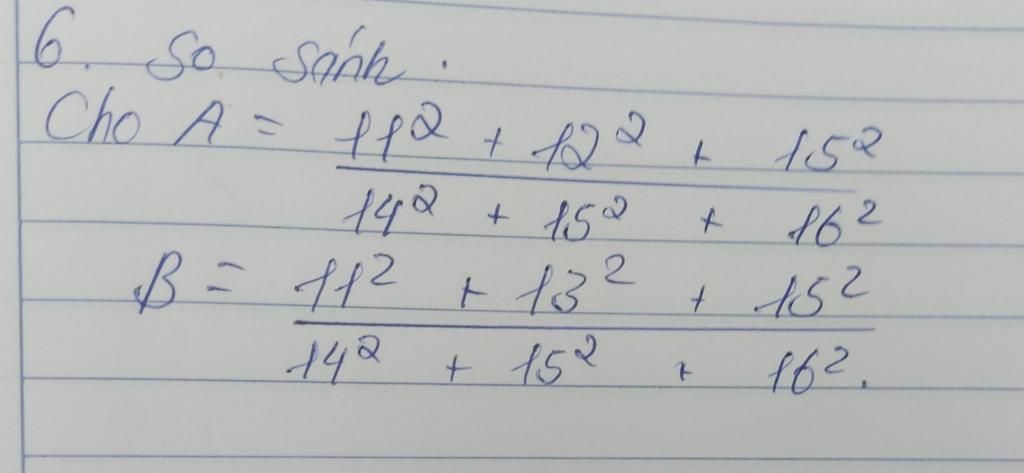 6. So sánh.
Cho A = 11² + 12² + 15²
14² + 15² + 16²
B = 11² + 13² + 15²
14² + 15² + 16².